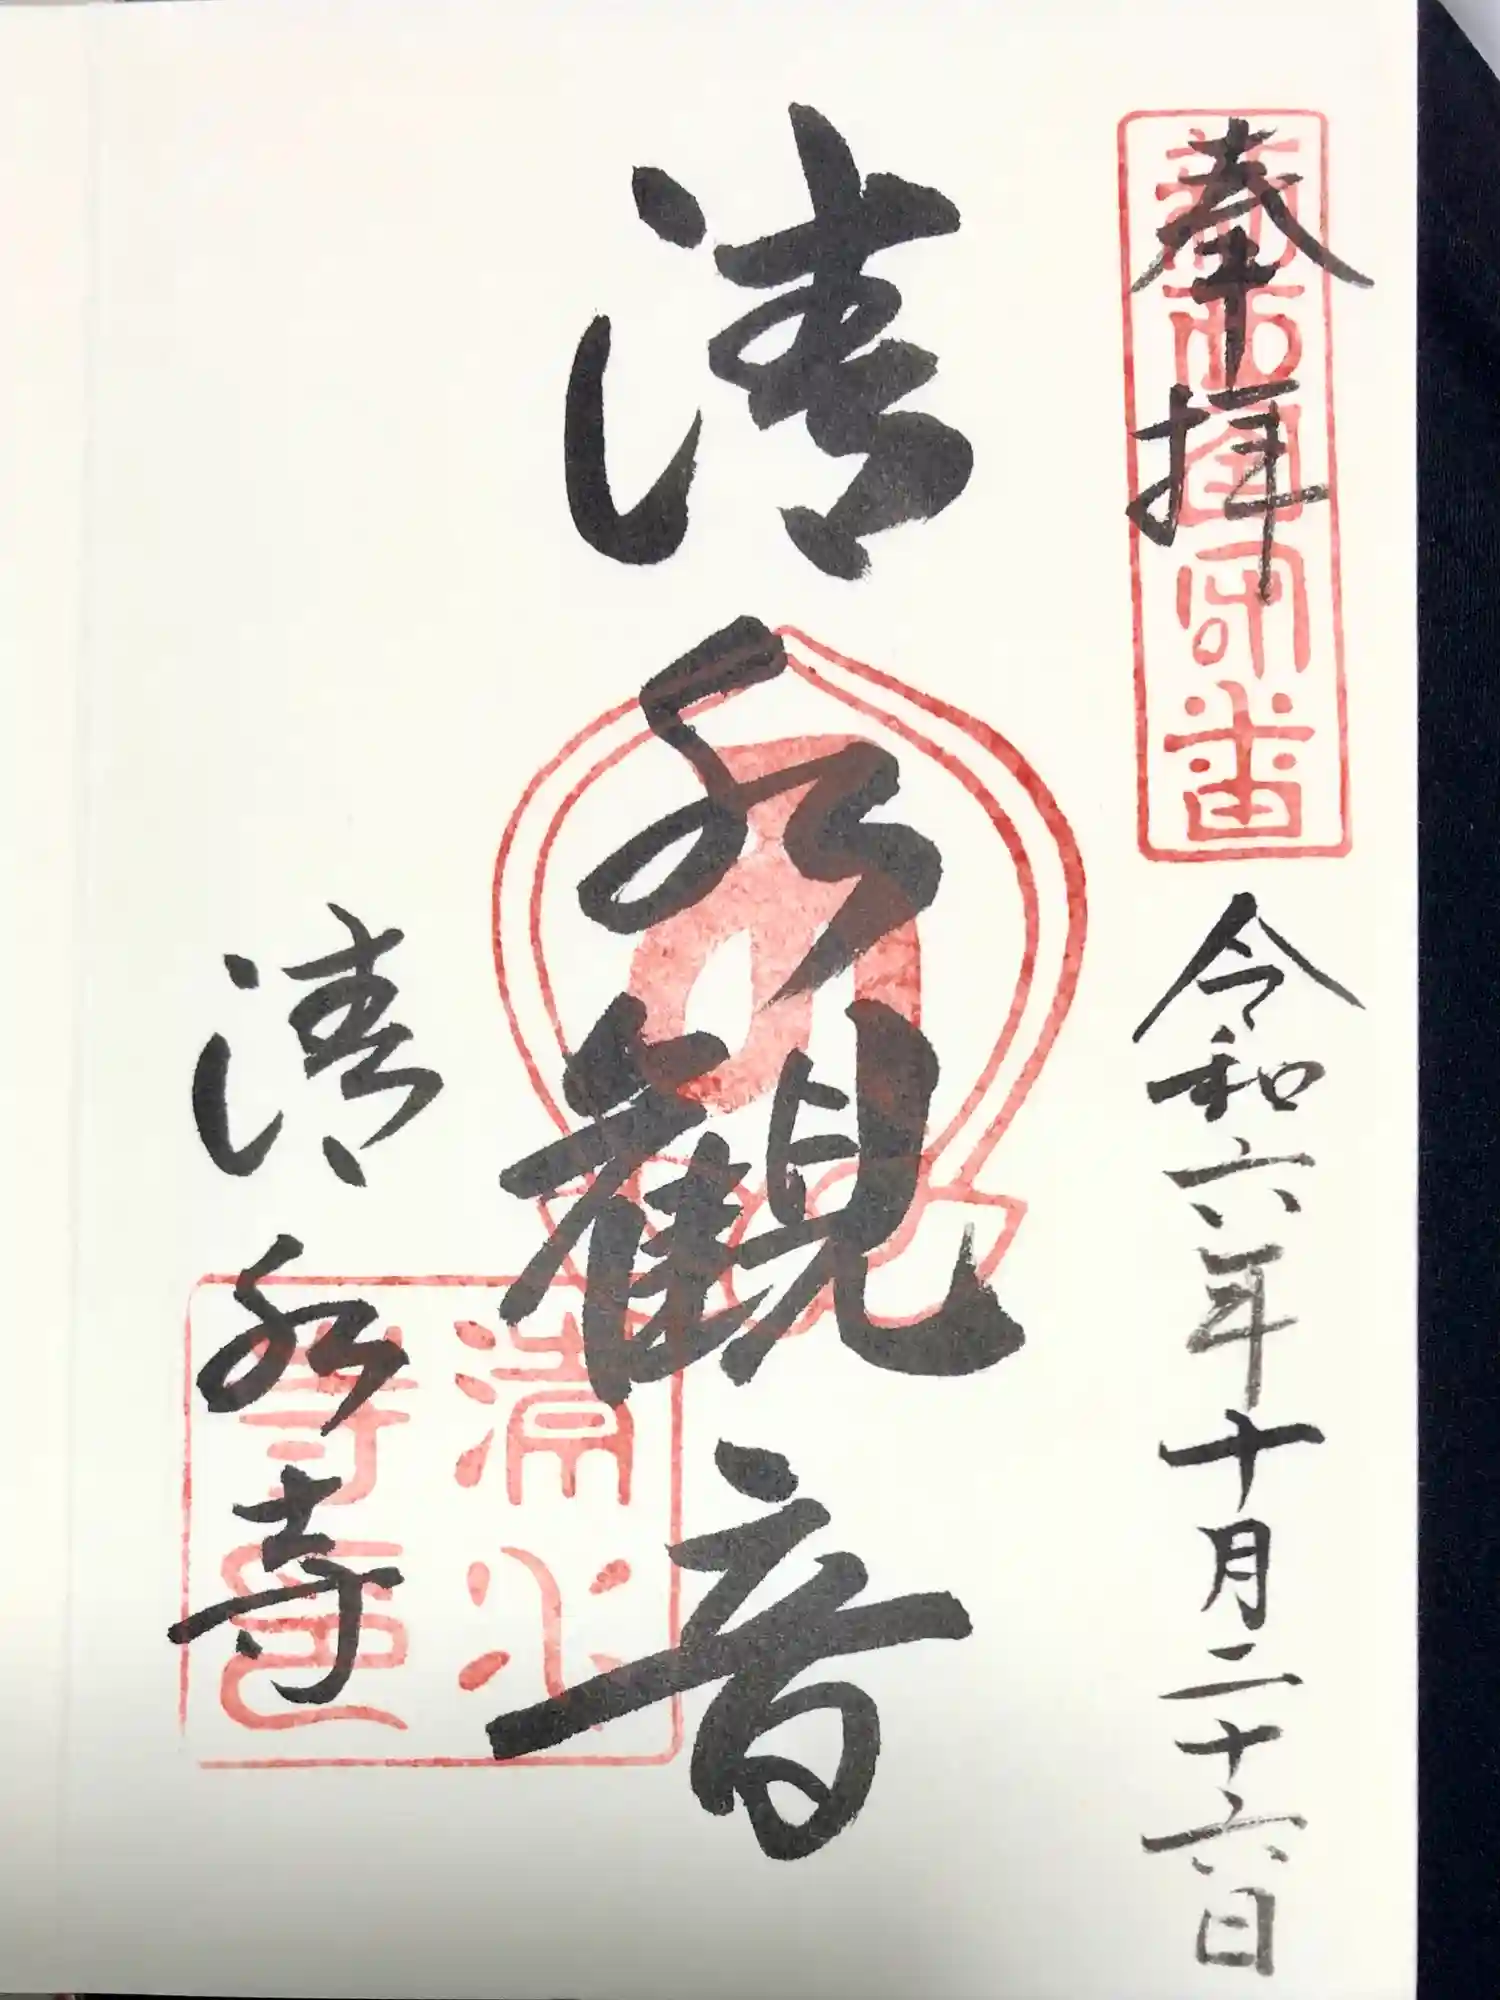 奉拝
令和六年十月二十六日
清水観音
清水寺
清水寺印